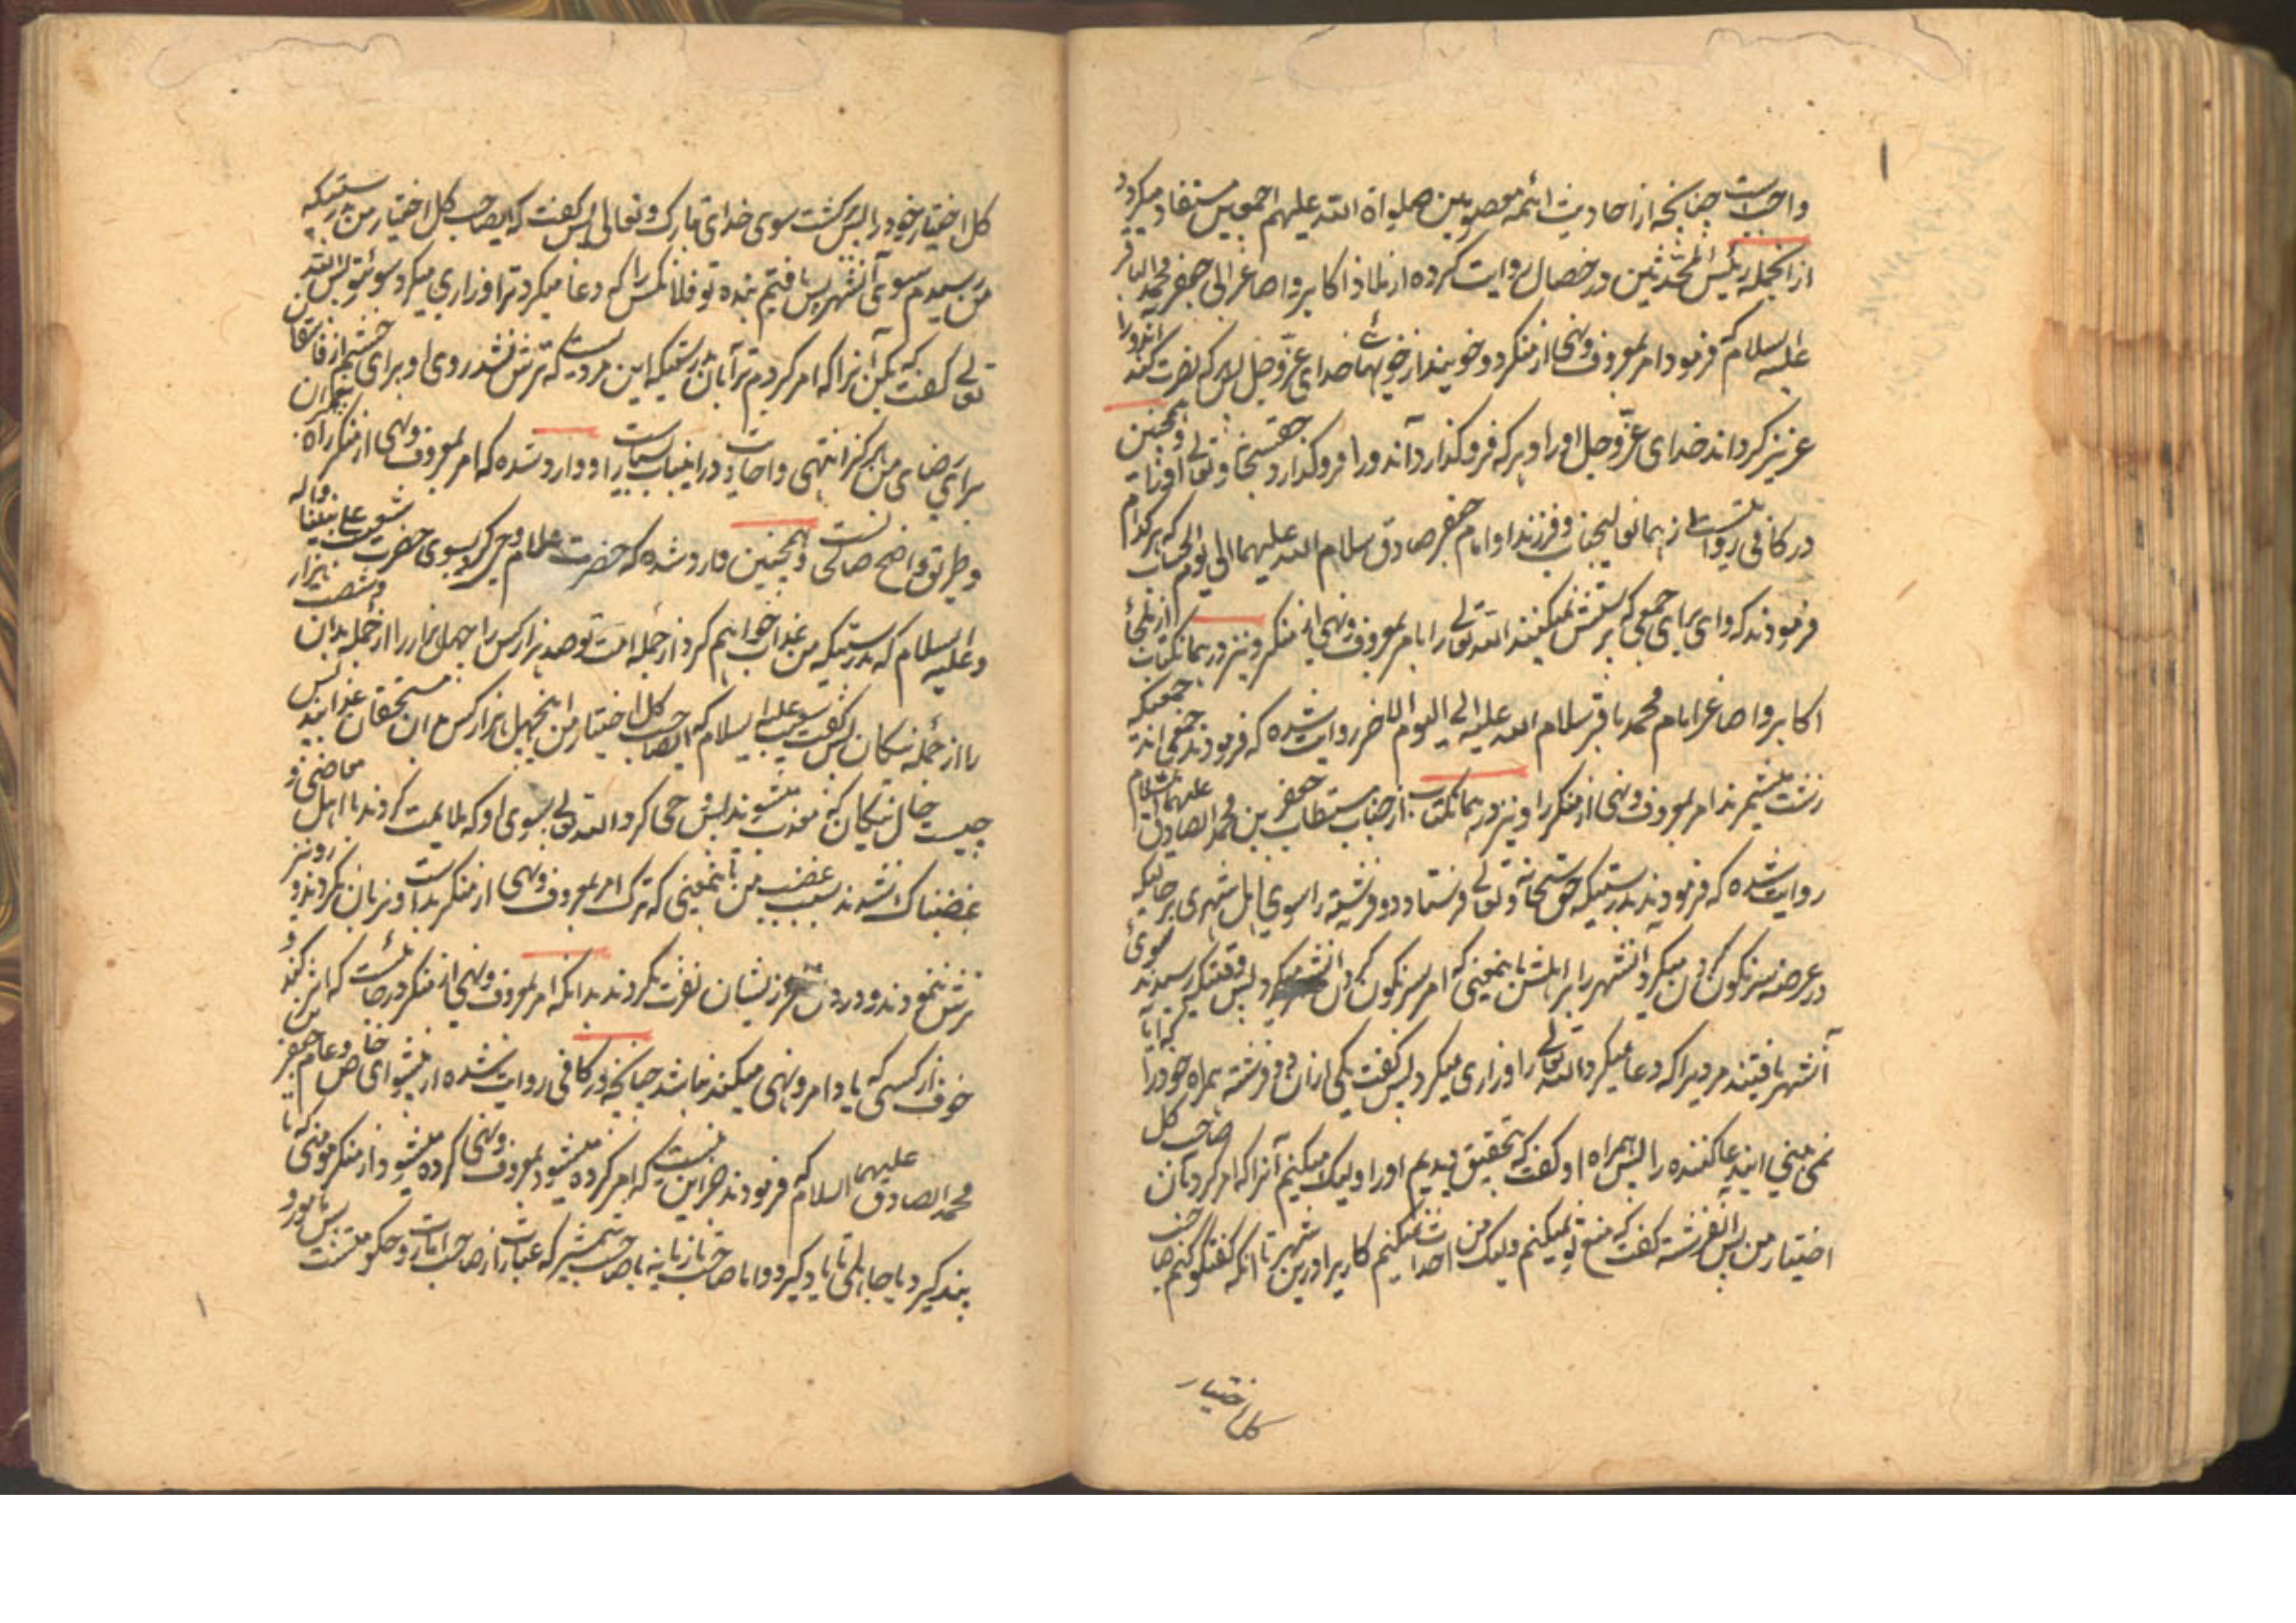 واجبست چنانچه از احادیث ائمه معصومین صلواة الله علیهم اجمعین مستفاد میگردد
از انجمله رئیس المحدثین در خصال روایت کرده از ملاذ اکابر و اصاغر ابی جعفر محمد الباقر
علیه السلام که فرمود امر بمعروف و نهی از منکر دو خویند از خویهای خدای عزّ و جل پس هر که نصرت کند اندو را
عزیز گرداند خدای عزّ و جل او را و هر که فرو گذارد آندو را فرو گذارد حقسبحانه و تعالی او را و همچنین
در کافی روایتست از همانعالیجناب و فرزند او امام جعفر صادق سلام الله علیهما الی یوم الحساب که هر کدام
فرمودند که وای برای جمعی که پرستش نمیکنند الله تعالی را بامر بمعروف و نهی از منکر و نیز در همانکتاب از ملجأ
اکابر و اصاغر امام محمد باقر سلام الله علیه الی الیوم الاخر روایت شده که فرمودند جمعی اند جمعیکه
زشت میشمرند امر بمعروف و نهی از منکر را و نیز در همانکتاب از جناب مستطاب جعفر بن محمد الصادق علیهما السلام
روایت شده که فرمودند بدرستیکه حق سبحانه و تعالی فرستاد دو فرشته را سوی اهل شهری بر حالیکه
در عرصه سرنگون کردن میکرد آنشهر را بر اهلش باینمعنی که امر سرنگون کردن انشهر میکرد پس وقتیکه رسیدند سوی
آنشهر یافتند مردیرا که دعا میکرد الله تعالی را و زاری میکرد پس گفت یکی ازان دو فرشته همراه خود را که آیا
نمی بینی ایندعا کننده را پس همراه او گفت که بتحقیق دیدیم او را و لیک میکنیم آنرا که امر کرد بآن صاحب کل
اختیار من پس آنفرشته گفت که منع تو نمیکنم و لیک من احداث نمیکنم کاریرا درین شهر تا انکه گفتگو کنم صاحب
کل اختیار
کل اختیار خود را پس برگشت سوی خدای تبارک و تعالی پس گفت که ایصاحب کل اختیار من بدرستیکه
من رسیدم سوی آنشهر پس یافتم بنده تو فلانکس را که دعا میکرد ترا و زاری میکرد سوی تو پس الله
تعالی گفت که بکن آنرا که امر کردم ترا بآن بدرستیکه این مردیست که ترش نشد روی او برای خشم از
برای رضای من هرگز انتهی و احادیث درینباب بسیارست و وارد شده که امر بمعروف و نهی از منکر راه پیغمبران
و طریق واضح صالحانست و همچنین وارد شده که حضرت علام وحی کرد بسوی حضرت شعیب علی نبینا و اله
و علیه السلام که بدرستیکه من عذاب خواهم کرد از جمله امت تو صد هزار کس را چهل هزار را از جمله بدان و شصت هزار
را از جمله نیکان پس گفت شعیب علیه السلام که ایصاحب کل اختیار من اینچهل هزار کس بدان مستحقان عذابند پس
چیست حال نیکان که معذب میشوند پس وحی کرد الله تعالی بسوی او که ملایمت کردند با اهل معاصی و
غضبناک نشدند بسبب غضب من باینمعنی که ترک امر بمعروف و نهی از منکر بدست و زبان کردند و رو نیز
ترش ننمودند و در دل نیز زیشان نفرت نکردند بدانکه امر بمعروف و نهی از منکر در جائیست که اثر کند و
خوف از کسی که با او امر و نهی میکند نباشد چنانچه در کافی روایت شده از پیشوای خاص و عام جعفر بن
محمد الصادق علیهما السلام که فرمودند جز این نیست که امر کرده میشود بمعروف و نهی کرده میشود از منکر مومنی که تا
پند گیرد یا جاهلی تا یاد گیرد و اما صاحب تازیانه یا صاحب شمشیر که عبارتست از صاحب امارت و حکومتست پس با او